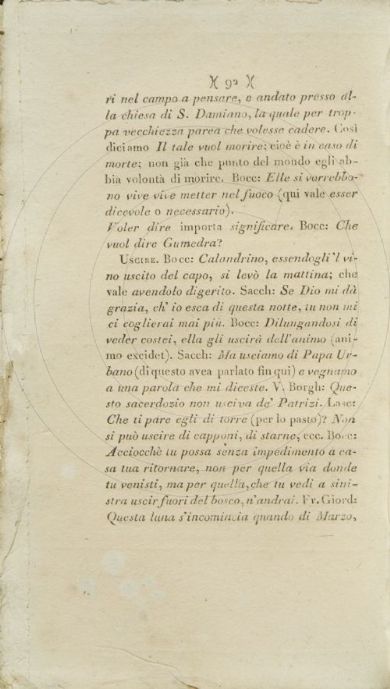 )( 92 )(
ri nel campo a pensare, e andato presso al-
la chiesa di S. Damiano, la quale per trop-
pa vecchiezza parea che volesse cadere. Così
diciamo Il tale vuol morire: cioè è in caso di
morte: non già che punto del mondo egli ab-
bia volontà di morire. Bocc: Elle si vorrebbo-
no vive vive metter nel fuoco (qui vale esser
dicevole o necessario).
Voler dire importa significare. Bocc: Che
vuol dire Gumedra?
Uscire. Bocc: Calandrino, essendogli 'l vi-
no uscito del capo, si levò la mattina; che
vale avendolo digerito. Sacch: Se Dio mi dà
grazia, ch' io esca di questa notte, tu non mi
ci coglierai mai più. Bocc: Dilungandosi di
veder costei, ella gli uscirà dell'animo (ani-
mo excidet). Sacch: Ma usciamo di Papa Ur-
bano (di questo avea parlato fin qui) e vegnamo
a una parola che mi diceste. V. Borgh: Que-
sto sacerdozio non usciva de' Patrizi. Lasc:
Che ti pare egli di torre (per lo pasto)? Non
si può uscire di capponi, di starne, ecc. Bocc:
Acciocchè tu possa senza impedimento a ca-
sa tua ritornare, non per quella via donde
tu venisti, ma per quella, che tu vedi a sini-
stra uscir fuori del bosco, n'andrai. Fr. Giord:
Questa luna s'incomincia quando di Marzo,